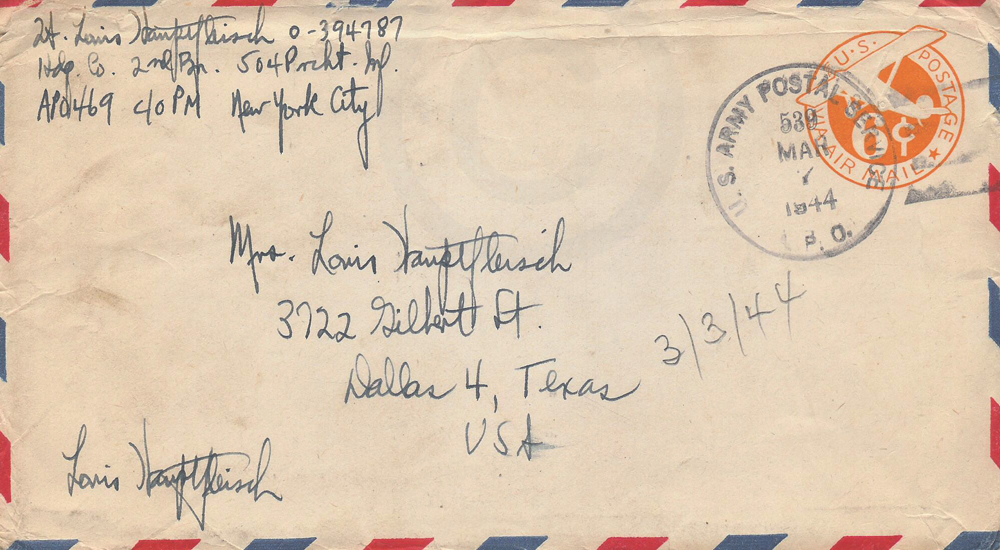 Lt. Louis Hauptfleisch O-394787
Hdq. Co. 2nd Bn. 504 Prcht. Inf.
APO 469 c/o PM New York City
U.S. POSTAGE
VIA AIR MAIL
6¢
U.S. ARMY POSTAL SERVICE
539
MAR
7
1944
A.P.O.
Mrs. Louis Hauptfleisch
3722 Gilbert St.
Dallas 4, Texas
USA
3/3/44
Louis Hauptfleisch